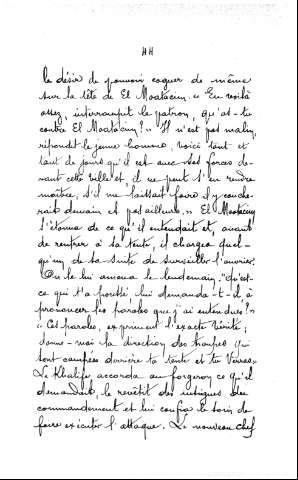 44
le désir de pouvoir cogner de même
sur la tête de El Moatacim. « En voilà
assez, interrompit le patron, qu'as-tu
contre El Moatacim? » « Il n'est pas malin,
répondit le jeune homme, voici tant et
tant de jours qu'il est avec ses forces de-
vant cette ville et il ne peut s'en rendre
maître, s'il me laissait faire il y couche-
rait demain et pas ailleurs. » El Moatacim
s'étonna de ce qu'il entendait et, avant
de rentrer à sa tente, il chargea quel-
qu'un de sa suite de surveiller l'ouvrier.
On le lui amena le lendemain, "qu'est-
ce qui t'a poussé lui demanda-t-il à
prononcer les paroles que j'ai entendues?"
« Ces paroles, expriment l'exacte vérité;
donne-moi la direction des troupes qui
sont campées derrière ta tente et tu verras»
Le Khalife accorda au forgeron ce qu'il
demandait, le revêtit des insignes du
commandement et lui confia le soin de
faire exécuter l'attaque. Le nouveau chef